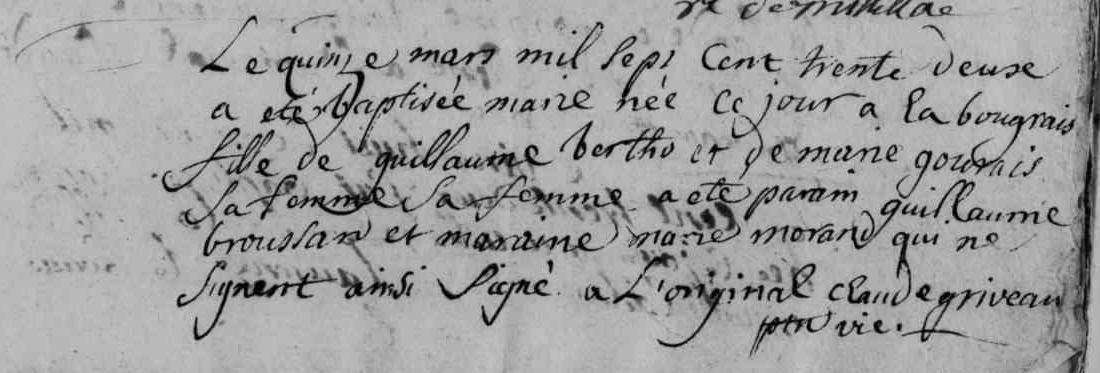 Le quinze mars mil sept Cent trente deuxe
a eté baptisée marie née Ce jour a la bougrais
fille de guillaume bertho et de marie gourais
Sa femme Sa femme a eté parain guillaume
broussan et maraine marie morand qui ne
signent ainsi Signé a L'original claude griveau
vic.